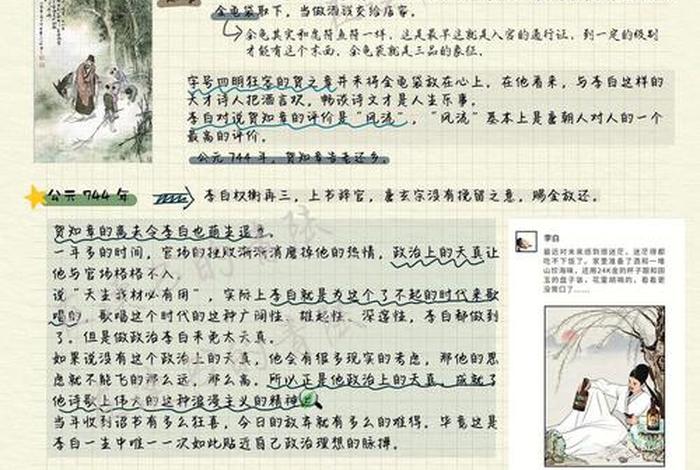 金龟袋取下，当做酒钱交给店家。
金龟其实和虎符鱼符一样，这是最早这就是入宫的通行证，到一定的级别
才能有这个东西，金龟袋就是三品的象征。
字号四明狂客的贺之章并未将金龟袋放在心上，在他看来，与李白这样的
天才诗人把酒言欢，畅谈诗文才是人生乐事。
李白对说贺知章的评价是“风流”，“风流”基本上是唐朝人对人的一个
最高的评价。
公元744年，贺知章告老还乡。
公元744年
李白权衡再三，上书辞官，唐玄宗没有挽留之意，赐金放还。
贺知章的离去令李白也萌生退意。
一年多的时间，官场的挫败渐渐消磨掉他的热情，政治上的天真让
他与官场格格不入。
说“天生我材必有用”，实际上李白就是为这个了不起的时代来歌
唱的，歌唱这个时代的这种广阔性、雄起性、深邃性，李白都做到
了。但是做政治李白未免太天真。
如果说没有这个政治上的天真，他会有很多现实的考虑，那他的思
虑就不能飞的那么远，那么高，所以正是他政治上的天真，成就了
他诗歌上伟大的这种浪漫主义的精神。
当年收到诏书有多么狂喜，今日的放弃就有多么的难得。毕竟这是
李白一生中唯一一次如此贴近自己政治理想的脉搏。
李白
最近对未来感到很迷茫，迷茫得都
吃不下饭了。家里准备了酒和一堆
山珍海味，还用24K金的杯子跟和田
玉的盘子装，花里胡哨的，看着更
没胃口了……